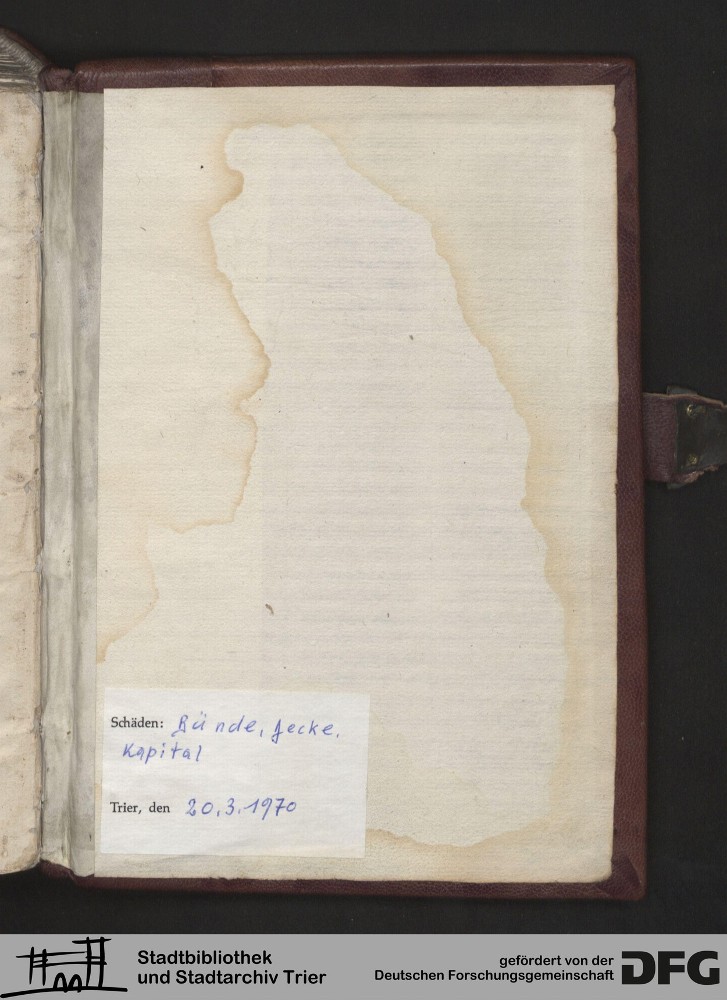 Schäden: Bünde, Decke,
Kapital
Trier, den 20.3.1970
Stadtbibliothek
und Stadtarchiv Trier
gefördert von der
Deutschen Forschungsgemeinschaft
DFG